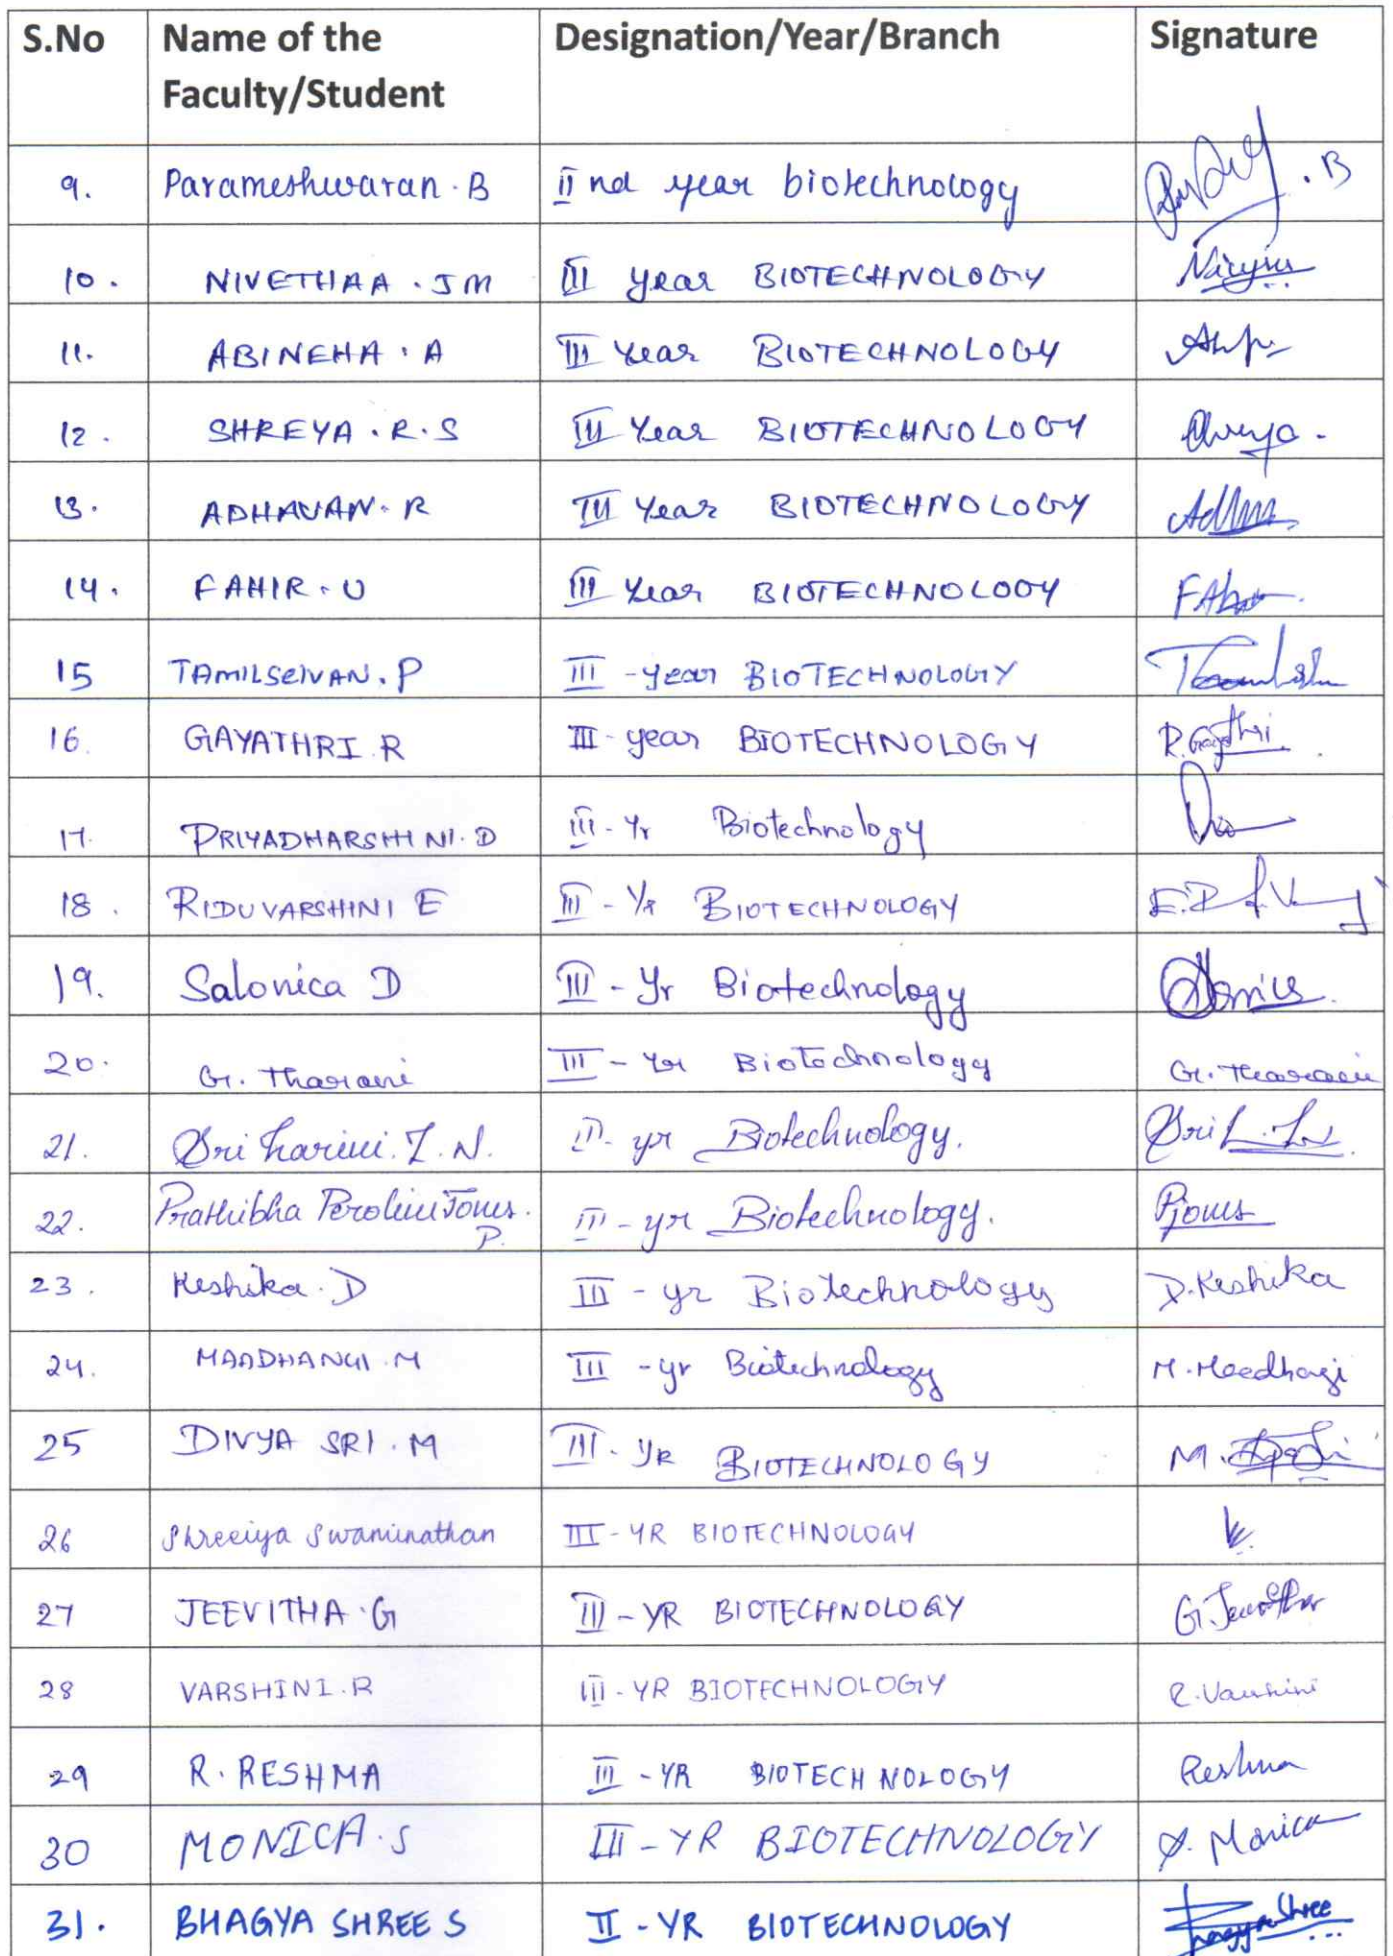 S.No Name of the Faculty/Student Designation/Year/Branch Signature
9. Parameshwaran.B II nd year biotechnology .B
10. NIVETHAA.JM III year BIOTECHNOLOGY
11. ABINEHA.A III Year BIOTECHNOLOGY
12. SHREYA.R.S III Year BIOTECHNOLOGY
13. ADHAVAN.R III Year BIOTECHNOLOGY
14. FAHIR.U III Year BIOTECHNOLOGY
15 TAMILSELVAN.P III -year BIOTECHNOLOGY
16. GAYATHRI R III-year BIOTECHNOLOGY R.Gayathri
17. PRIYADHARSHINI.D III-Yr Biotechnology
18. RIDUVARSHINI E III-Yr BIOTECHNOLOGY
19. Salonica D III-Yr Biotechnology
20. G. Tharani III-Yr Biotechnology G. Tharani
21. Sri harini. yr Biotechnology.
22. Prathibha P. III-yr Biotechnology. Pjones
23. Keshika.D III-yr Biotechnology D.Keshika
24. MAADHANGI.M III-yr Biotechnology
25 DIVYA SRI.M III-YR BIOTECHNOLOGY M.
26 Shreeiya Swaminathan III-YR BIOTECHNOLOGY
27 JEEVITHA.G III-YR BIOTECHNOLOGY G.Jeevitha
28 VARSHINI.R III-YR BIOTECHNOLOGY R.Varshini
29 R.RESHMA III-YR BIOTECHNOLOGY Reshma
30 MONICA.S III-YR BIOTECHNOLOGY S. Monica
31. BHAGYA SHREE S II-YR BIOTECHNOLOGY Bhagya Shree